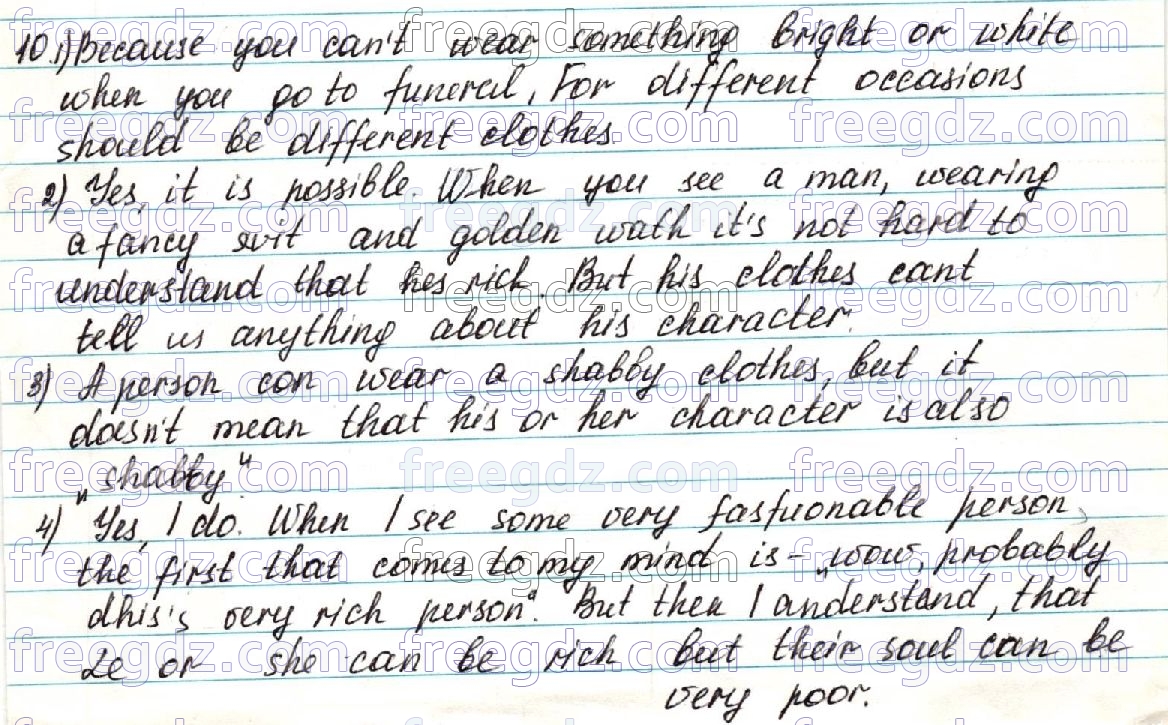 10. 1) Because you can't wear something bright or white
when you go to funeral, For different occasions
should be different clothes.
2) Yes, it is possible. When you see a man, wearing
a fancy suit and golden wath it's not hard to
understand that hes rich. But his clothes cant
tell us anything about his character.
3) A person can wear a shabby clothes, but it
doesn't mean that his or her character is also
„shabby"
4) Yes, I do. When I see some very fasfuonable person,
the first that comes to my mind is - „wow, probably
dhis's very rich person". But then I anderstand, that
2e or she can be rich but their soul can be
very poor.
freegdz.com